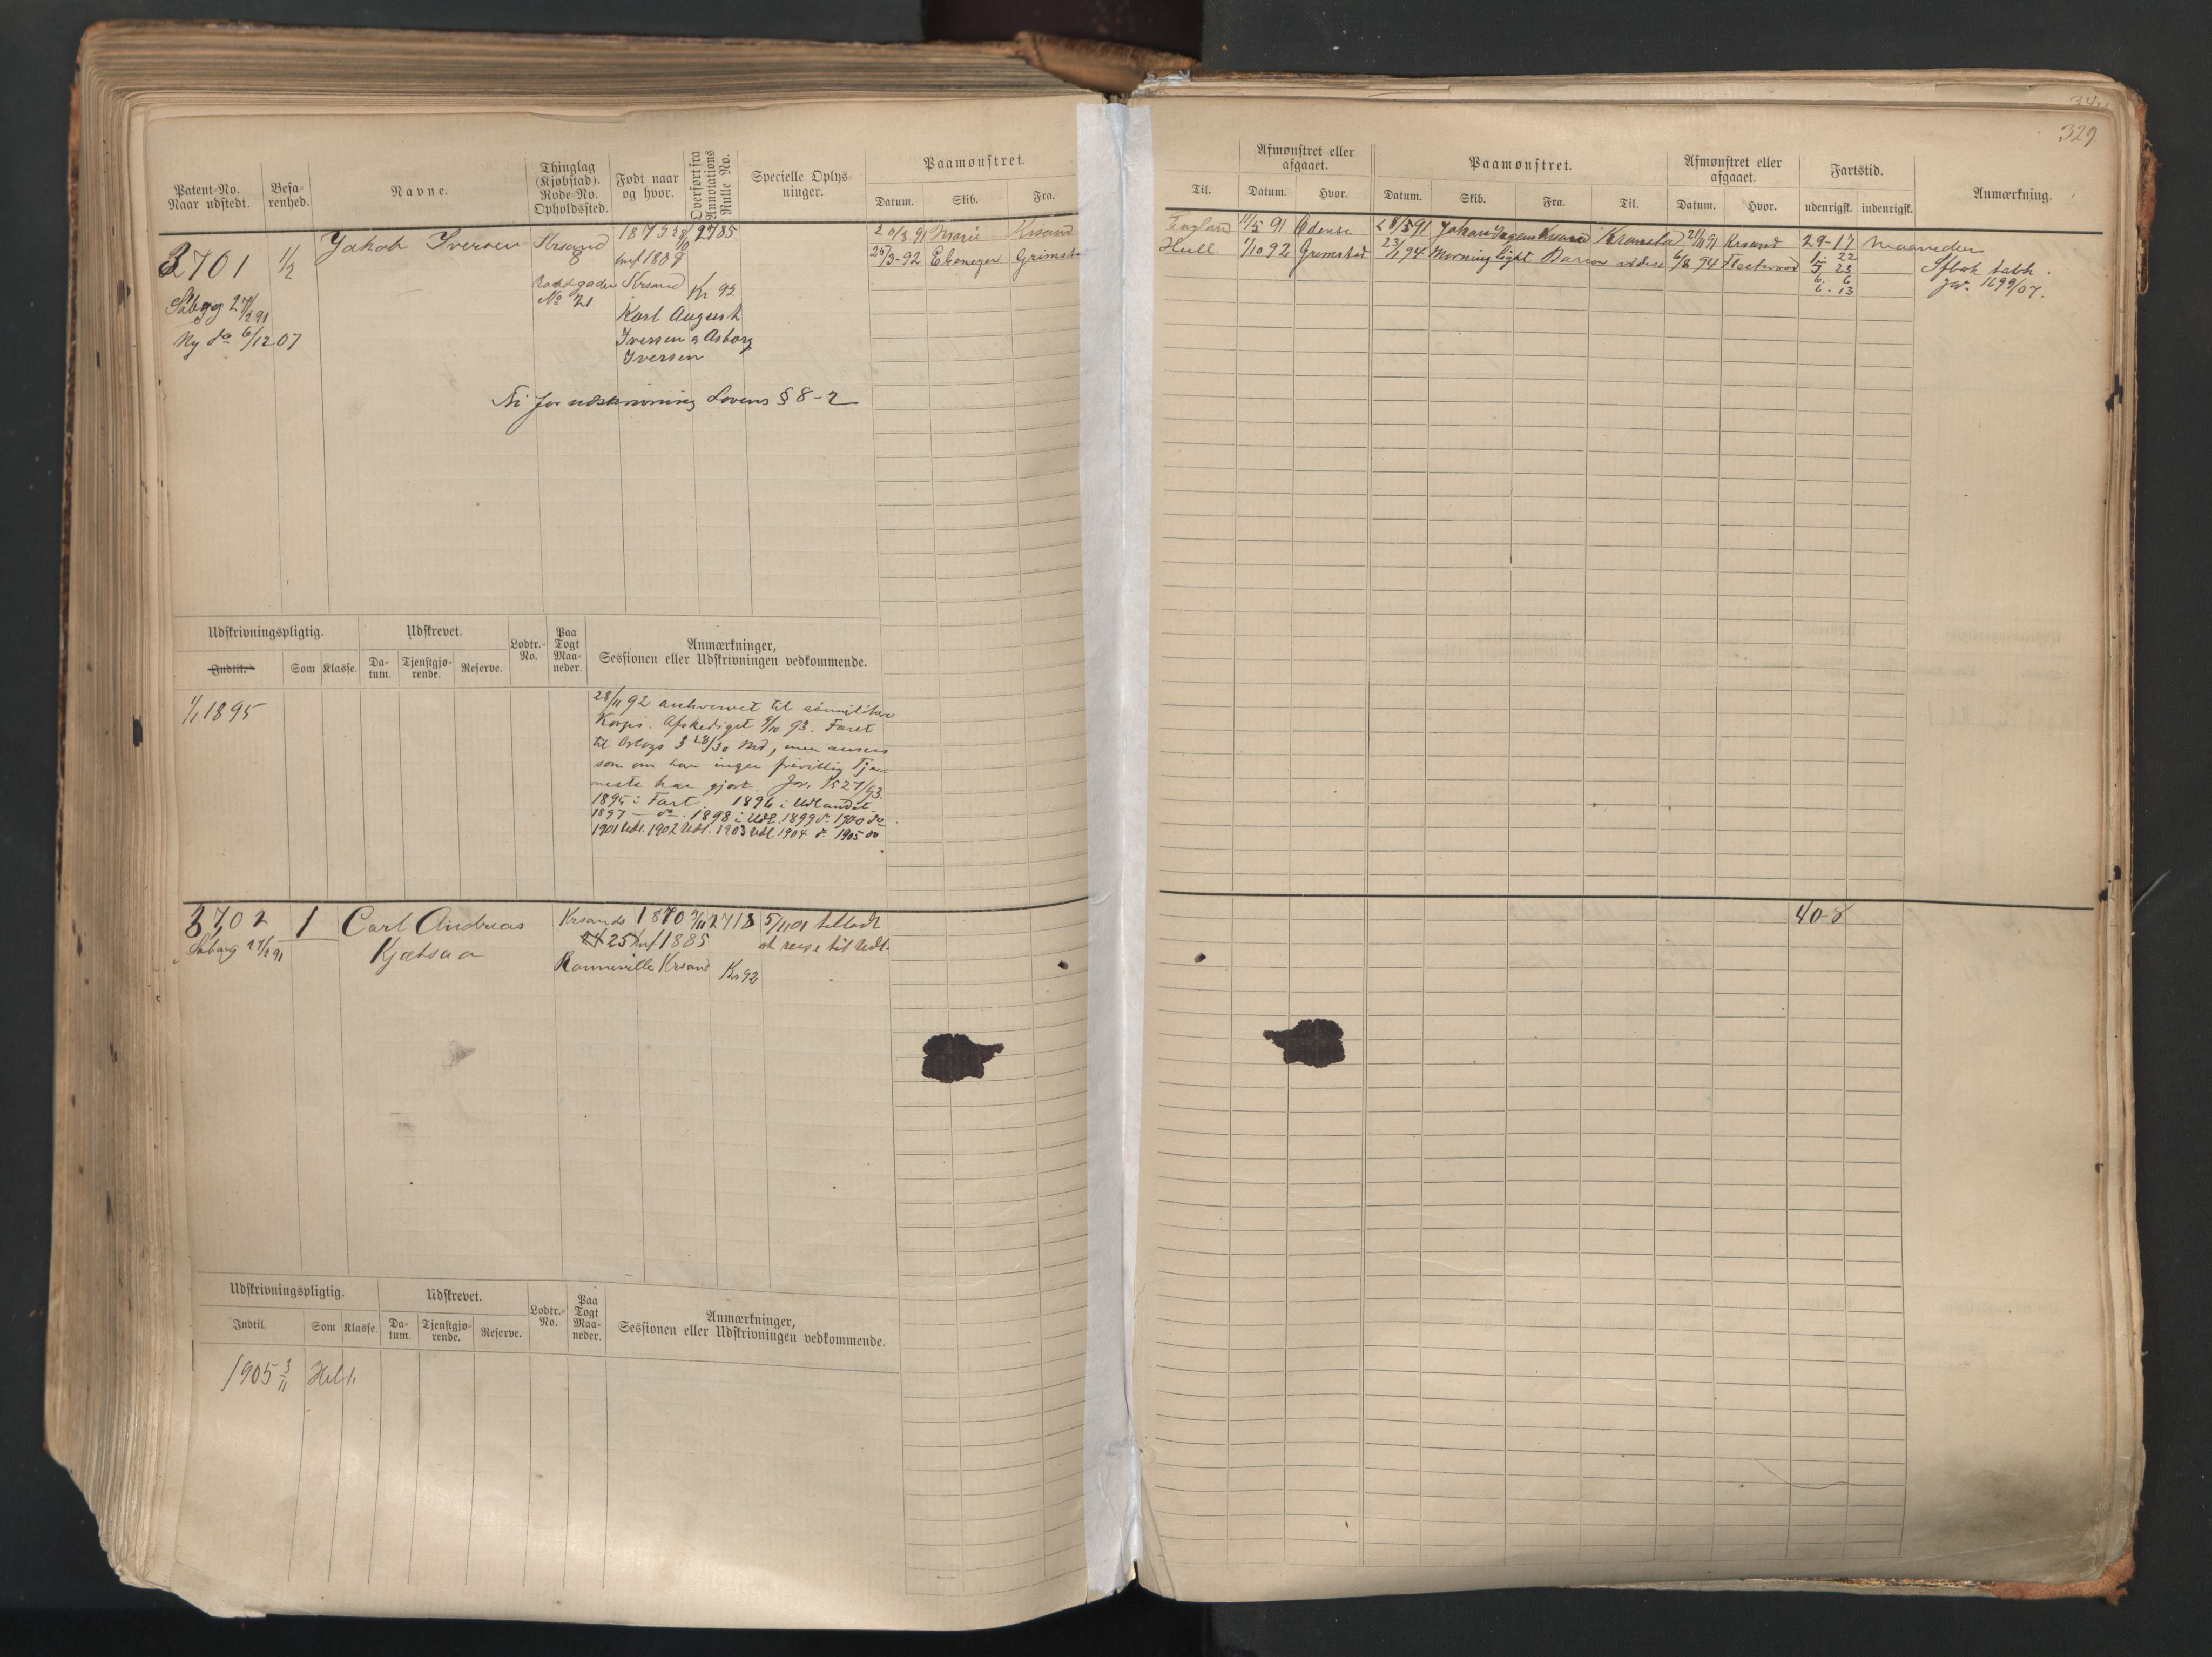 329
Patent-No.
Naar udstedt.
Befa-
renhed.
Navne.
Thinglag
(Kjøbstad).
Rode-No.
Opholdssted.
Født naar
og hvor.
Overført fra
Annotations
Rulle No.
Specielle Oplys-
ninger.
Paamønstret.
Datum. Skib. Fra.
3701 1/2 Jakob Iversen Krsand
8
2785
konf 1889
No 21
Krsand Kr 92
Karl August
Iversen og Asborg
Iversen
Ny do 6/12 07
20/3 91 Marie Krsand
25/3-92 Ebenezer Grimstad
Lovens § 8-2
Udskrivningspligtig. Udskrevet. Lodtr.-
No. Paa
Togt
Maa-
neder. Anmærkninger,
Sessionen eller Udskrivningen vedkommende.
Indtil. Som Klasse. Da-
tum. Tjenstgjø-
rende. Reserve.
1/1 1895
28/11 92 anhvervet til sömilitære
Korps. Afskediget 9/10 93. Faret
til Orlogs 3 28/30 Md, men ansees
som om han ingen frivillig Tje-
neste har gjort. Jor. 1527/93.
1895 i Fart. 1896 i Udlandet.
1897 — do. 1898 i Udl. 1899 do. 1900 do
1901 Udl. 1902 Udl. 1903 Udl. 1904 do 1905 do
3702 1 Carl Andreas
Kjætsaa
Krsands 1870 3/11 2718 5/11 01 tilladt
25 konf 1885 at reise til Udl.
Krsand Kr 92
Udskrivningspligtig. Udskrevet. Lodtr.-
No. Paa
Togt
Maa-
neder. Anmærkninger,
Sessionen eller Udskrivningen vedkommende.
Indtil. Som Klasse. Da-
tum. Tjenstgjø-
rende. Reserve.
1905 3/11
Til. Afmønstret eller
afgaaet. Paamønstret. Afmønstret eller
afgaaet. Fartstid. Anmærkning.
Datum. Hvor. Datum. Skib. Fra. Til. Datum. Hvor. udenrigsk. indenrigsk.
England 11/5 91 Odense 28/5 91 Krsand 29-17 Maaneder
Hull 1/10 92 Grimstad 23/1 94 Morning light videre 6/8 94 Fleetwood 1. 22
5. 23
6. 6
6. 13
Sfbok tabt.
Jor. 1699/07.
40-8